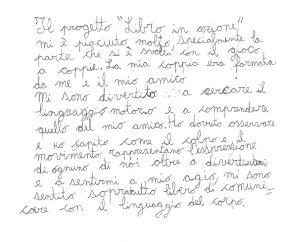 Il progetto "Libro in azione"
mi è piaciuto molto, specialmente la
parte che si è svolta con il gioco
a coppie. La mia coppia era formata
da me e il mio amico
Mi sono divertito a cercare il
linguaggio motorio e a comprendere
quello del mio amico. Ho dovuto osservare
e ho capito come il colpo e il
movimento rappresentano l'espressione
di ognuno di noi oltre a divertirmi
e a sentirmi a mio agio, mi sono
sentito soprattutto libero di comuni-
care con il linguaggio del corpo.